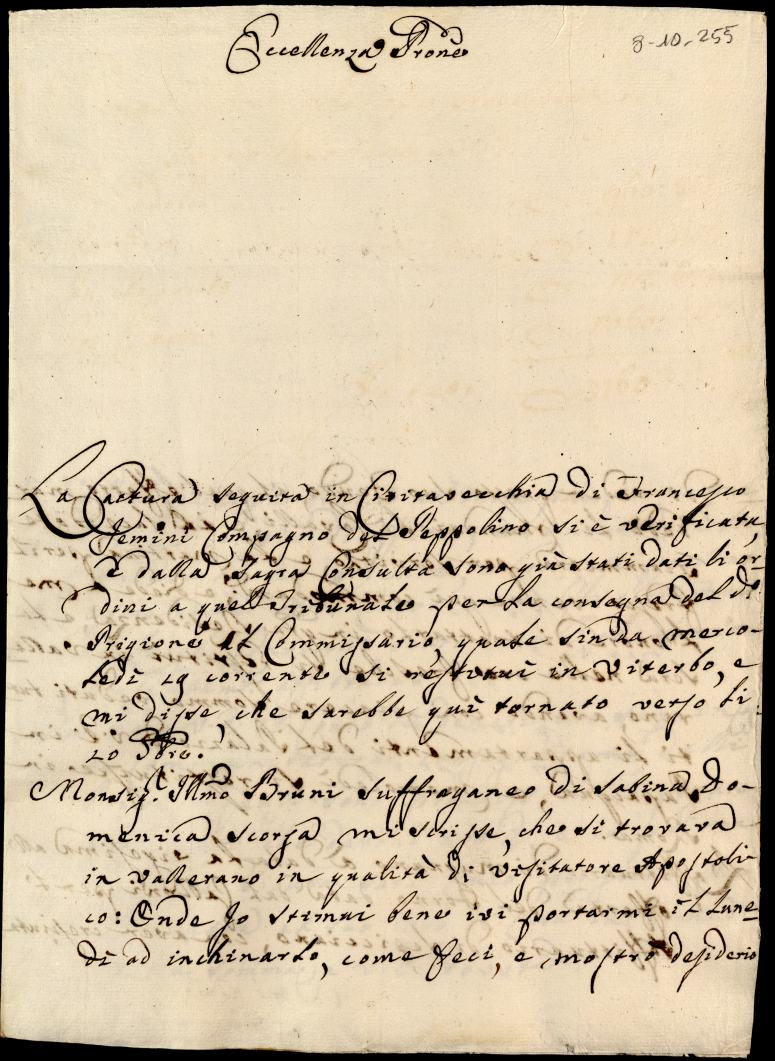 Eccellenza Prone
8-10-255
La Cactura seguita in Civitavecchia di Francesco
Jemini Compagno del Peppolino si è verificata,
è dalla Sagra Consulta sono già stati dati li or-
dini a quel Tribunale per la consegna del do
Prigione al Commissario, quale sin da merco-
ledì 19 corrente si restituì in Viterbo, e
mi disse, che sarebbe quì tornato verso li
20 8bre.
Monsigr. Illmo Bruni Suffraganeo di Sabina Do-
menica scorsa mi scrisse, che si trovava
in vallerano in qualità di Visitatore Apostoli-
co: Onde Jo stimai bene ivi portarmi il Lune-
dì ad inchinarlo, come feci, e mostrò desiderio